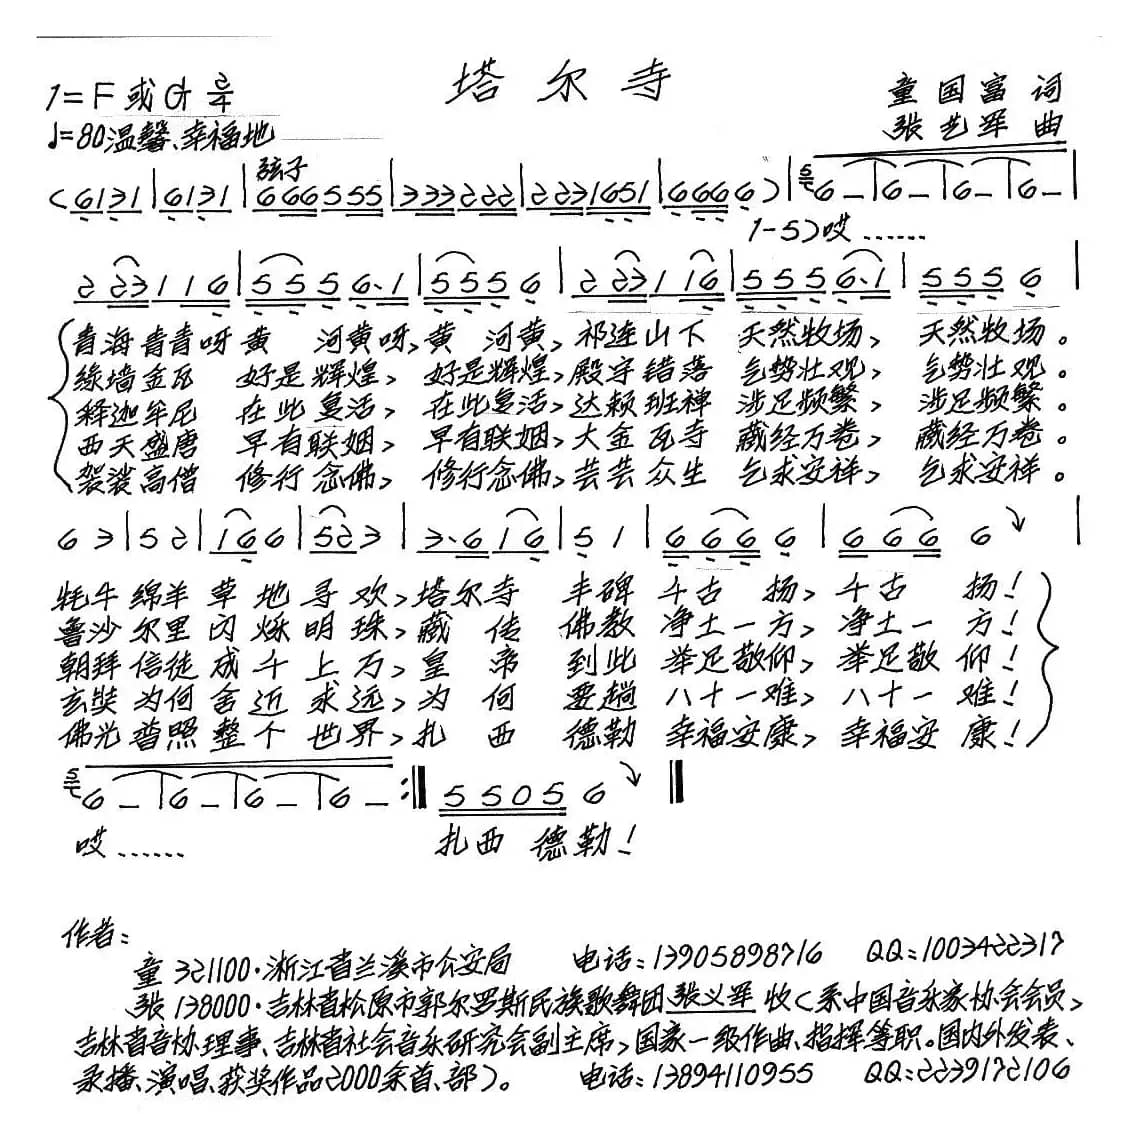 塔尔寺
1=F或G 2/4
童国富 词
♩=80温馨、幸福地
张艺军 曲
弦子
(6131|6131|666555|333222|2231651|6666)|6–|6–|6–|6–|
1-5)哎……
223116|5556·1|5556|223116|5556·1|5556|
青海青青呀黄 河黄呀,黄 河黄,祁连山下 天然牧场, 天然牧场。
绿墙金瓦 好是辉煌, 好是辉煌,殿宇错落 气势壮观, 气势壮观。
释迦牟尼 在此复活, 在此复活,达赖班禅 涉足频繁, 涉足频繁。
西天盛唐 早有联姻, 早有联姻,大金瓦寺 藏经万卷, 藏经万卷。
袈裟高僧 修行念佛, 修行念佛,芸芸众生 乞求安祥, 乞求安祥。
63|52|166|523|3·616|51|6666|6666|
牦牛绵羊草地寻欢,塔尔寺 丰碑 千古 扬,千古 扬!
鲁沙尔里闪烁明珠,藏传 佛教 净土一方,净土一方!
朝拜信徒成千上万,皇帝 到此 举足敬仰,举足敬仰!
玄奘为何舍近求远,为何 要趟 八十一难,八十一难!
佛光普照整个世界,扎西 德勒 幸福安康,幸福安康!
6–|6–|6–|6–:‖55056‖
哎…… 扎西德勒!
作者:
童 321100·浙江省兰溪市公安局 电话:13905898716 QQ:1003422317
张 138000·吉林省松原市郭尔罗斯民族歌舞团张义军 收(系中国音乐家协会会员,
吉林省音协理事、吉林省社会音乐研究会副主席,国家一级作曲、指挥等职。国内外发表、
录播、演唱、获奖作品2000余首、部)。 电话:13894110955 QQ:2239172106